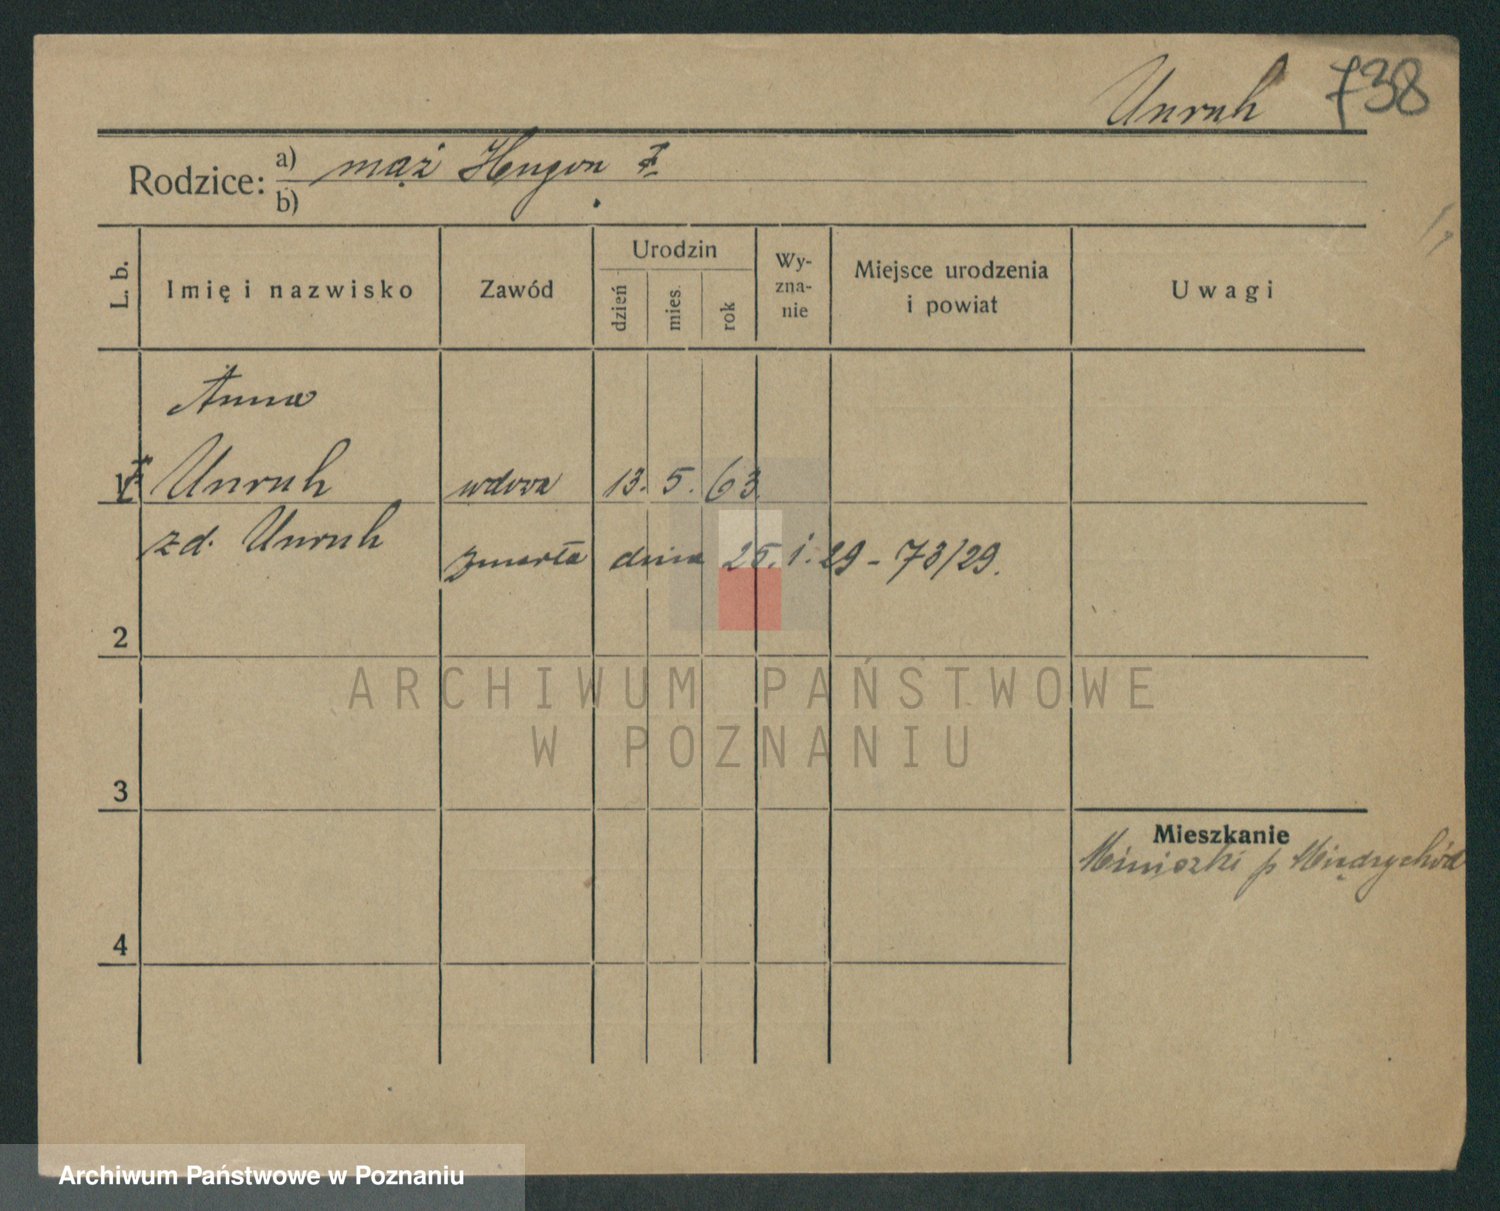 Unruh 738
Rodzice: a) mąż Hugon
b)
L. b.
Imię i nazwisko
Zawód
Urodzin
dzień
mies.
rok
Wy-
zna-
nie
Miejsce urodzenia
i powiat
Uwagi
Anna
1 Unruh wdowa 13. 5. 63
zd. Unruh
zmarła dnia 25. 1. 29 - 73/29.
2
ARCHIWUM PAŃSTWOWE
W POZNANIU
3
Mieszkanie
p Międzychód
4
Archiwum Państwowe w Poznaniu